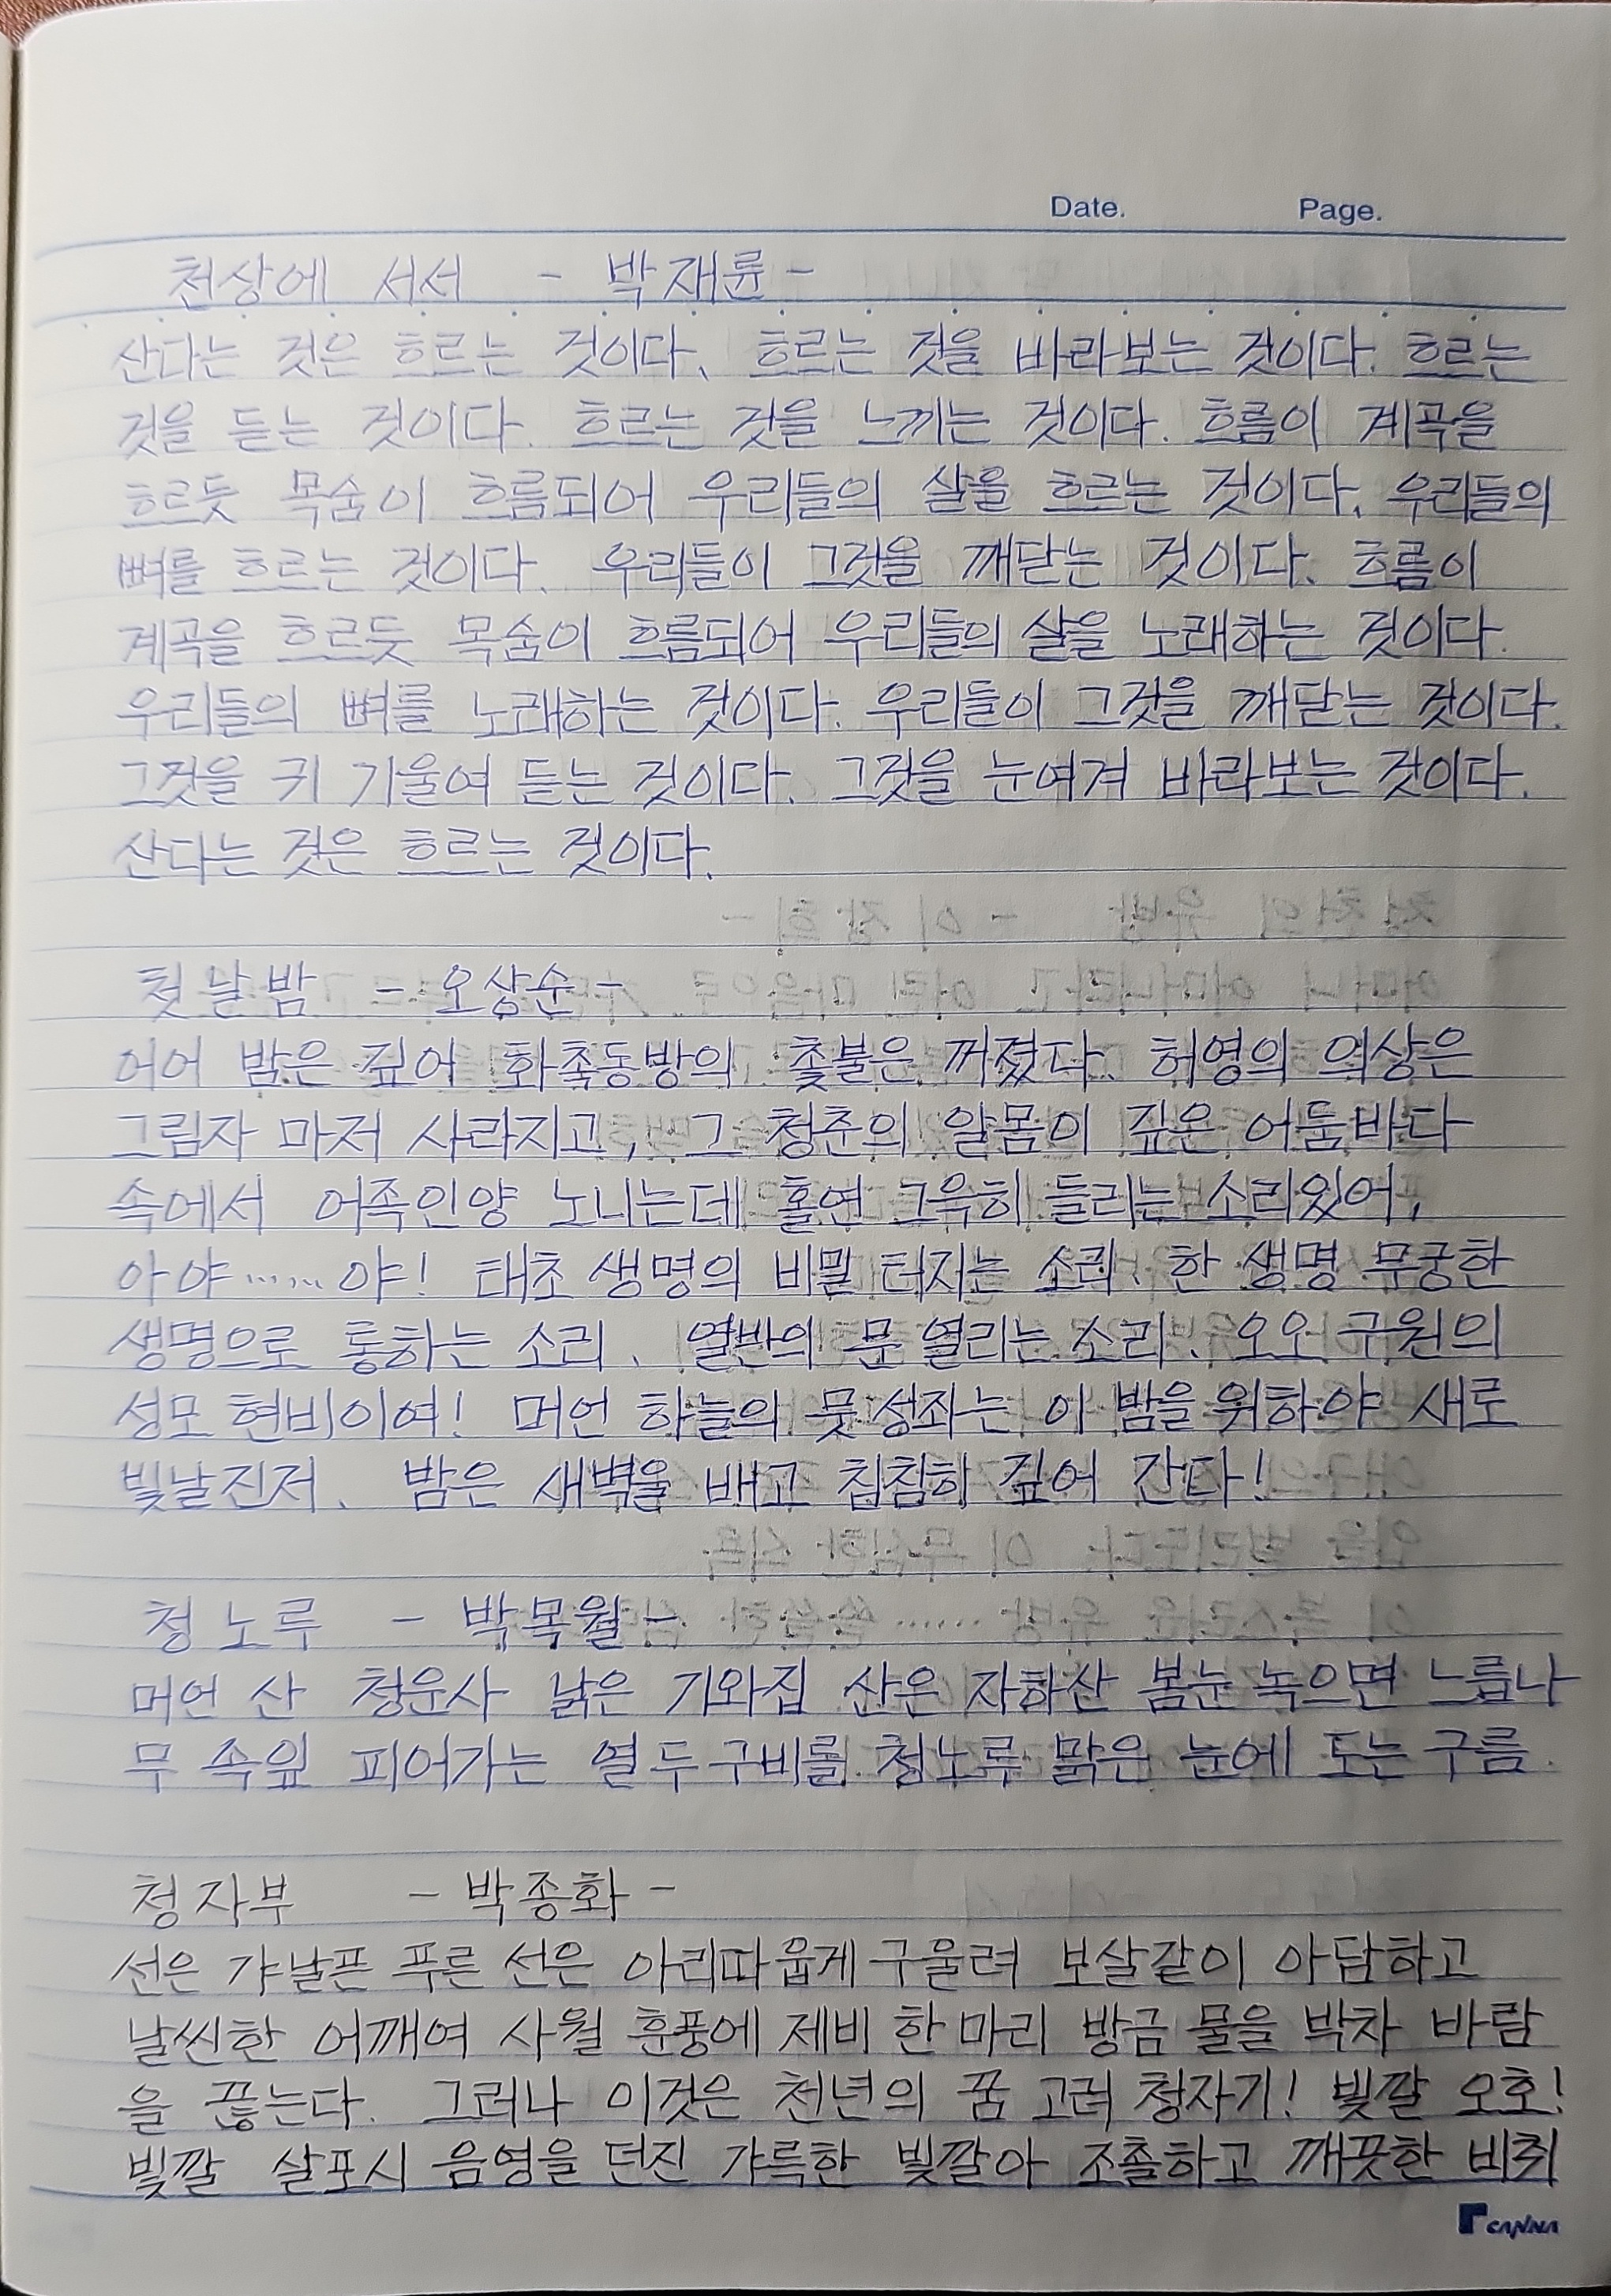 Date. Page.
천상에 서서 - 박재륜 -
산다는 것은 흐르는 것이다. 흐르는 것을 바라보는 것이다. 흐르는
것을 듣는 것이다. 흐르는 것을 느끼는 것이다. 흐름이 계곡을
흐르듯 목숨이 흐름되어 우리들의 살을 흐르는 것이다. 우리들의
뼈를 흐르는 것이다. 우리들이 그것을 깨닫는 것이다. 흐름이
계곡을 흐르듯 목숨이 흐름되어 우리들의 살을 노래하는 것이다.
우리들의 뼈를 노래하는 것이다. 우리들이 그것을 깨닫는 것이다.
그것을 귀 기울여 듣는 것이다. 그것을 눈여겨 바라보는 것이다.
산다는 것은 흐르는 것이다.
첫날밤 - 오상순 -
어어 밤은 깊어 화촉동방의 촛불은 꺼졌다. 허영의 의상은
그림자 마저 사라지고, 그 청춘의 알몸이 깊은 어둠바다
속에서 어족인양 노니는데 홀연 그윽히 들리는 소리있어,
아야......야! 태초 생명의 비밀 터지는 소리. 한 생명 무궁한
생명으로 통하는 소리. 열반의 문 열리는 소리. 오오 구원의
성모 현비이여! 머언 하늘의 뭇 성좌는 이 밤을 위하야 새로
빛날진저. 밤은 새벽을 배고 침침히 깊어 간다!
청노루 - 박목월 -
머언 산 청운사 낡은 기와집 산은 자하산 봄눈 녹으면 느릅나
무 속잎 피어가는 열두구비를 청노루 맑은 눈에 도는 구름.
청자부 - 박종화 -
선은 갸날픈 푸른 선은 아리따웁게 구울려 보살같이 아담하고
날씬한 어깨여 사월 훈풍에 제비 한마리 방금 물을 박차 바람
을 끊는다. 그러나 이것은 천년의 꿈 고려 청자기! 빛깔 오호!
빛깔 살포시 음영을 던진 갸륵한 빛깔아 조촐하고 깨끗한 비취
CANNA